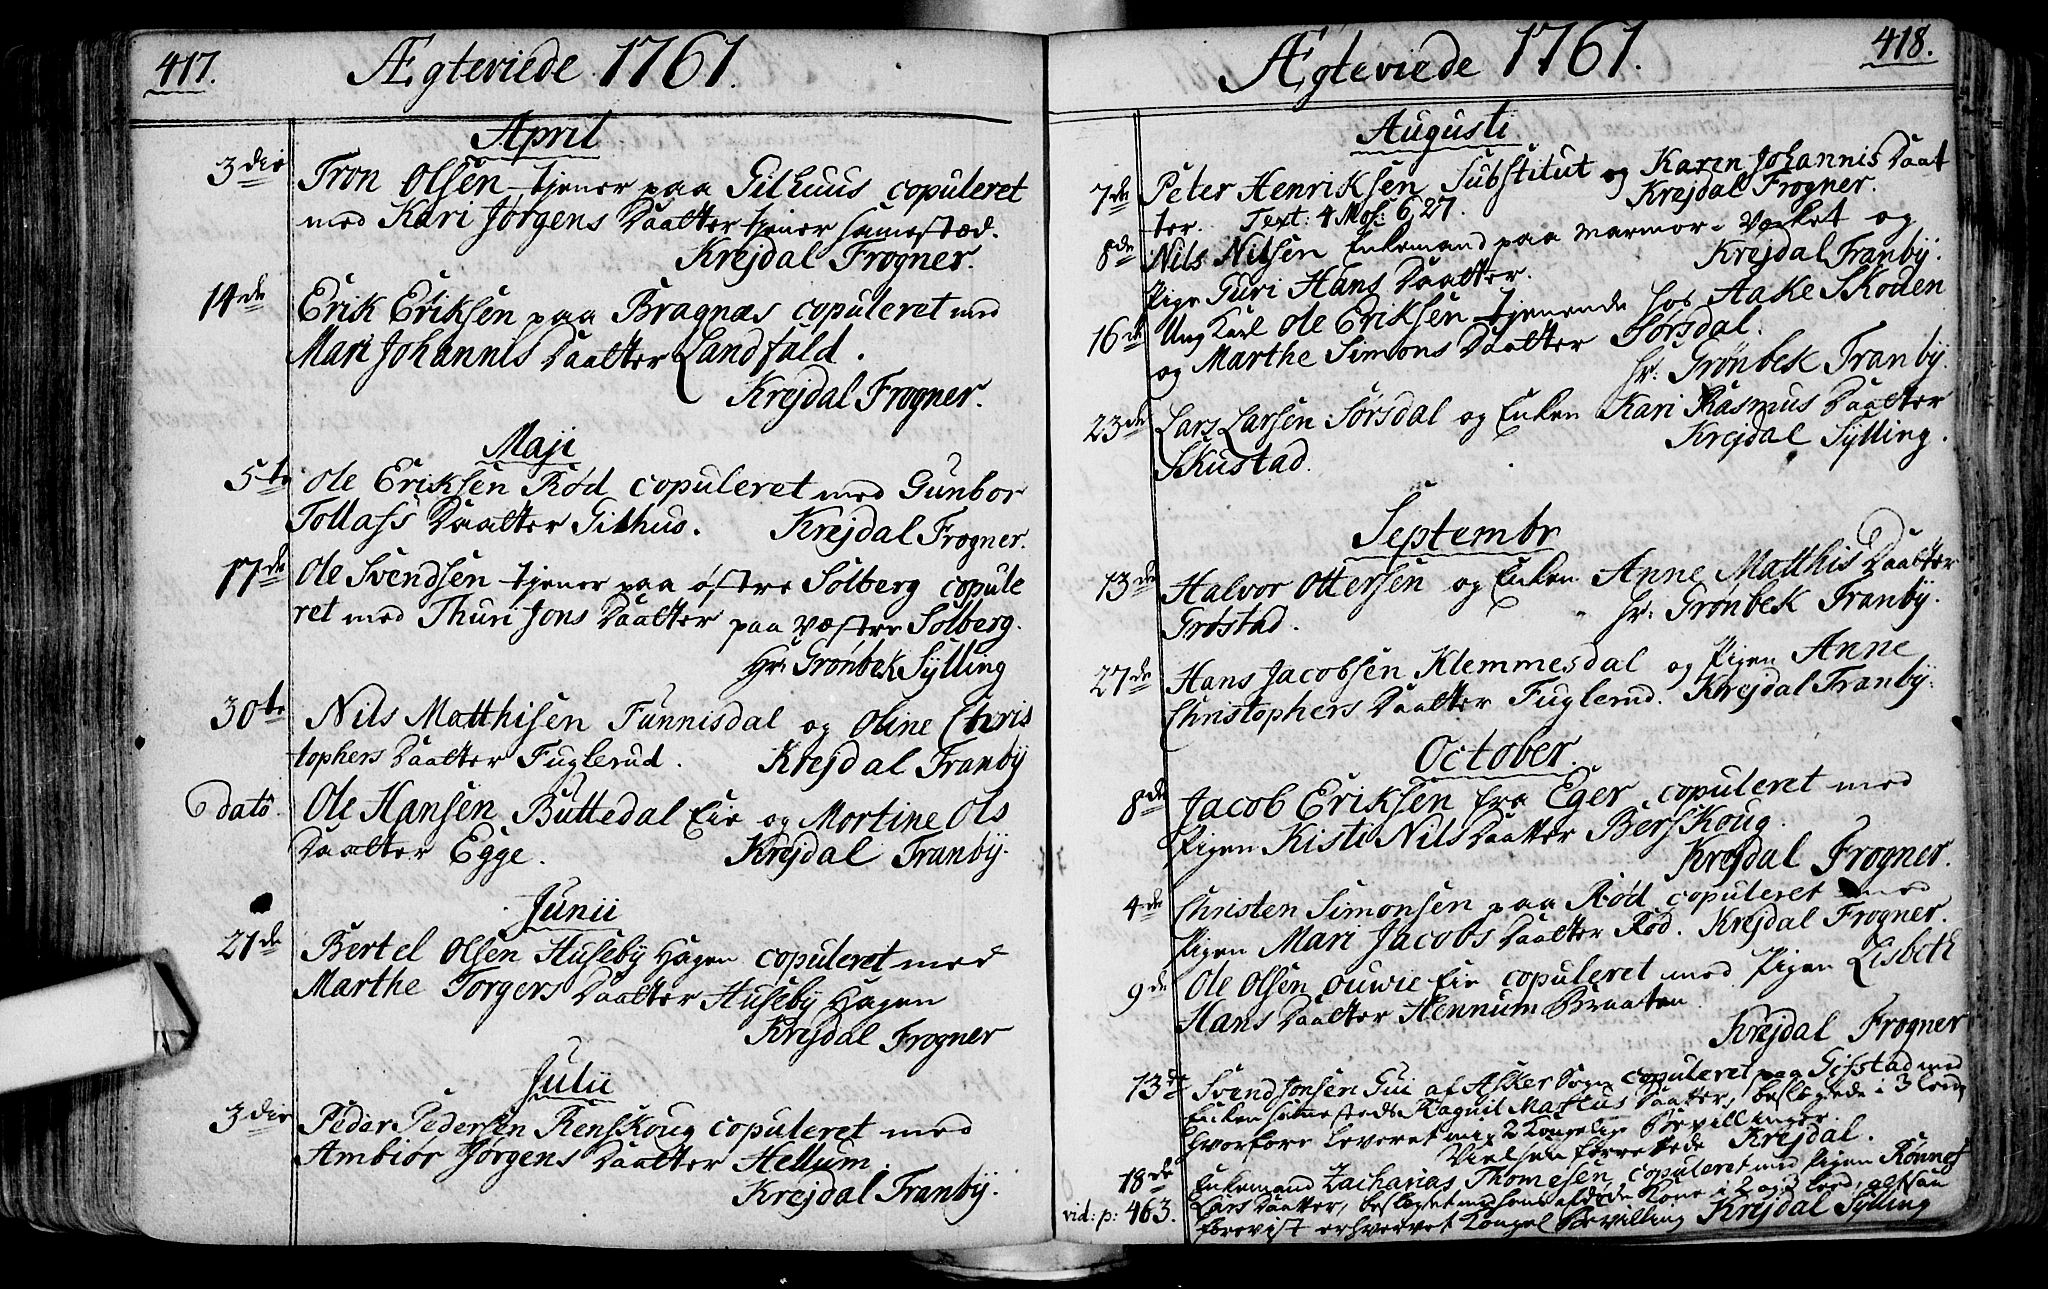 417.
Ægteviede 1761.
April
3die Tron Olsen tjener paa Gilhuus copuleret
med Kari Jørgens Daatter tjener samestæd.
Krejdal Frogner.
14de Erik Eriksen paa Bragnæs copuleret med
Mari Johannis Daatter Landfald.
Krejdal Frogner.
Maji
5te Ole Eriksen Rød copuleret med Gunbor
Tollafs Daatter Gilhus. Krejdal Frogner.
17de Ole Svendsen tjener paa østre Solberg copule
ret med Thuri Jons Daatter paa Væstre Solberg.
Hr: Grønbek Sylling
30te Nils Matthisen Tunnisdal og Oline Chris
tophers Daatter Fuglerud. Krejdal Tranby
dato. Ole Hansen Buttedal Eie og Mortine Ols
Daatter Egge. Krejdal Tranby.
Junii
21de Bertel Olsen Huseby Hagen copuleret med
Marthe Torgers Daatter Huseby Hagen
Krejdal Frogner
Julii
3die Peder Pedersen Renskoug copuleret med
Ambiør Jørgens Daatter Hellum.
Krejdal Tranby.
418.
Ægteviede 1761.
Augusti
7de Peter Henriksen Substitut og Karen Johannis Daat
ter. Text: 4 Mos: 6, 27. Krejdal Frogner.
8de Nils Nilsen Enkemand paa Marmor-Værket og
Pige Guri Hans Daatter. Krejdal Tranby.
16de Ung Karl Ole Eriksen tjenende hos Aake Skoden
og Marthe Simons Daatter Sørsdal.
Hr: Grønbek Tranby.
23de Lars Larsen Sørsdal og Enken Kari Rasmus Daatter
Skustad. Krejdal Sylling.
Septembr
13de Halvor Ottersen og Enken Anne Matthis Daatter
Grøstad. Hr: Grønbek Tranby.
27de Hans Jacobsen Klemmesdal og Pigen Anne
Christophers Daatter Fuglerud. Krejdal Tranby.
October.
8de Jacob Eriksen fra Eger copuleret med
Pigen Kisti Nils Daatter Berskoug.
Krejdal Frogner.
4de Christen Simonsen paa Rød copuleret med
Pigen Mari Jacobs Daatter Rød. Krejdal Frogner.
9de Ole Olsen Ouwie Eie copuleret med Pigen Lisbeth
Hans Daatter Hennum Braaten.
Krejdal Frogner
13de Svend Jonsen Gui af Asker Sogn copuleret paa Gifstad med
Enken sammesteds Ragnil Matius Daatter, beslægtede i 3 Leed
hvorfore leveret mig 2 Kongelige Bevillinger.
Vielsen forrettede Krejdal.
18de Enkemand Zacharias Thomesen copuleret med Pigen Rønnof
Lars Daatter, beslægtet med hans afdøde Kone i 2 og 3 Leed, altsaa
vid: p: 463. forevist erhvervet Kongel Bevilling Krejdal Sylling